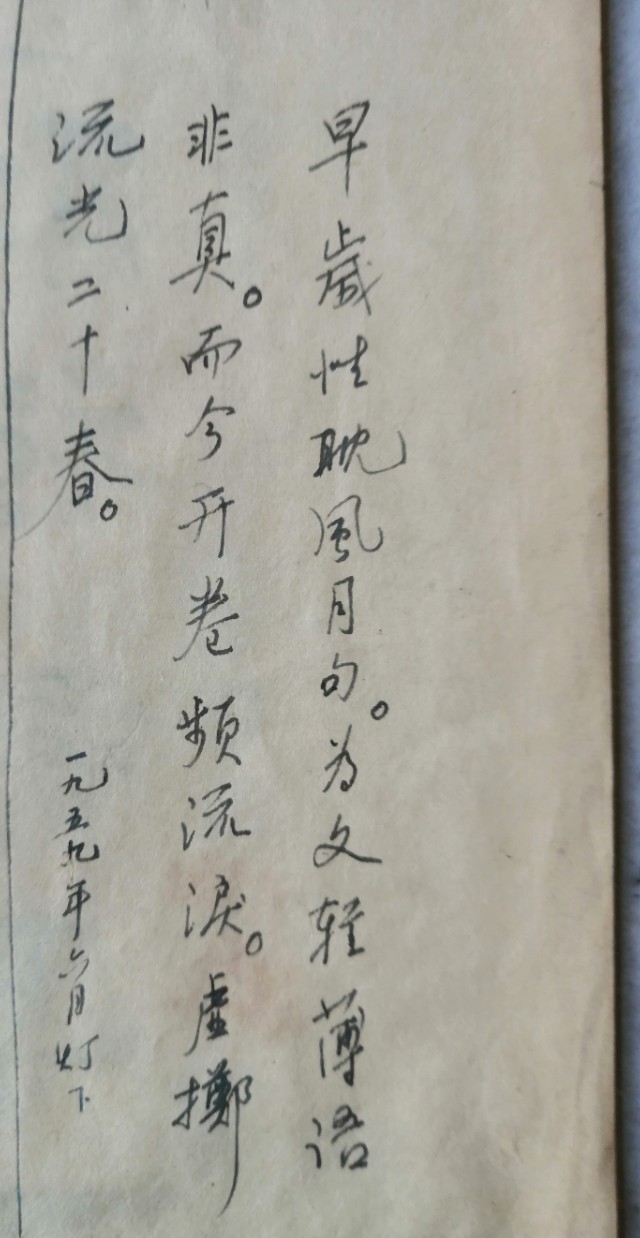 早歲性耽風月句。为文轻薄语
非真。而今开卷频流淚。虚擲
流光二十春。
一九五九年六月灯下